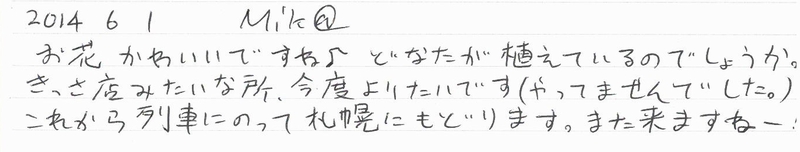 2014 6 1 Mik@
お花 かわいいですね♪ どなたが植えているのでしょうか。
きっさ店みたいな所、今度よりたいです(やってませんでした。)
これから列車にのって札幌にもどります。また来ますねー!